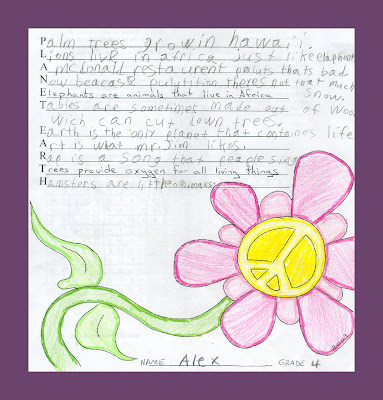 Palm trees grow in hawaii.
Lions live in africa just like elaphents
A mcdonald restaurent poluts thats bad
Now beacase pulutition theres not that much
snow.
Elephants are animals that live in Africa
Tables are sometimes made out of woo
wich can cut down trees.
Earth is the only planet that containes life
Art is what mr. Jim likes.
Rap is a song that people sing
Trees provide oxygen for all living things
Hamsters are little animals
NAME Alex GRADE 4